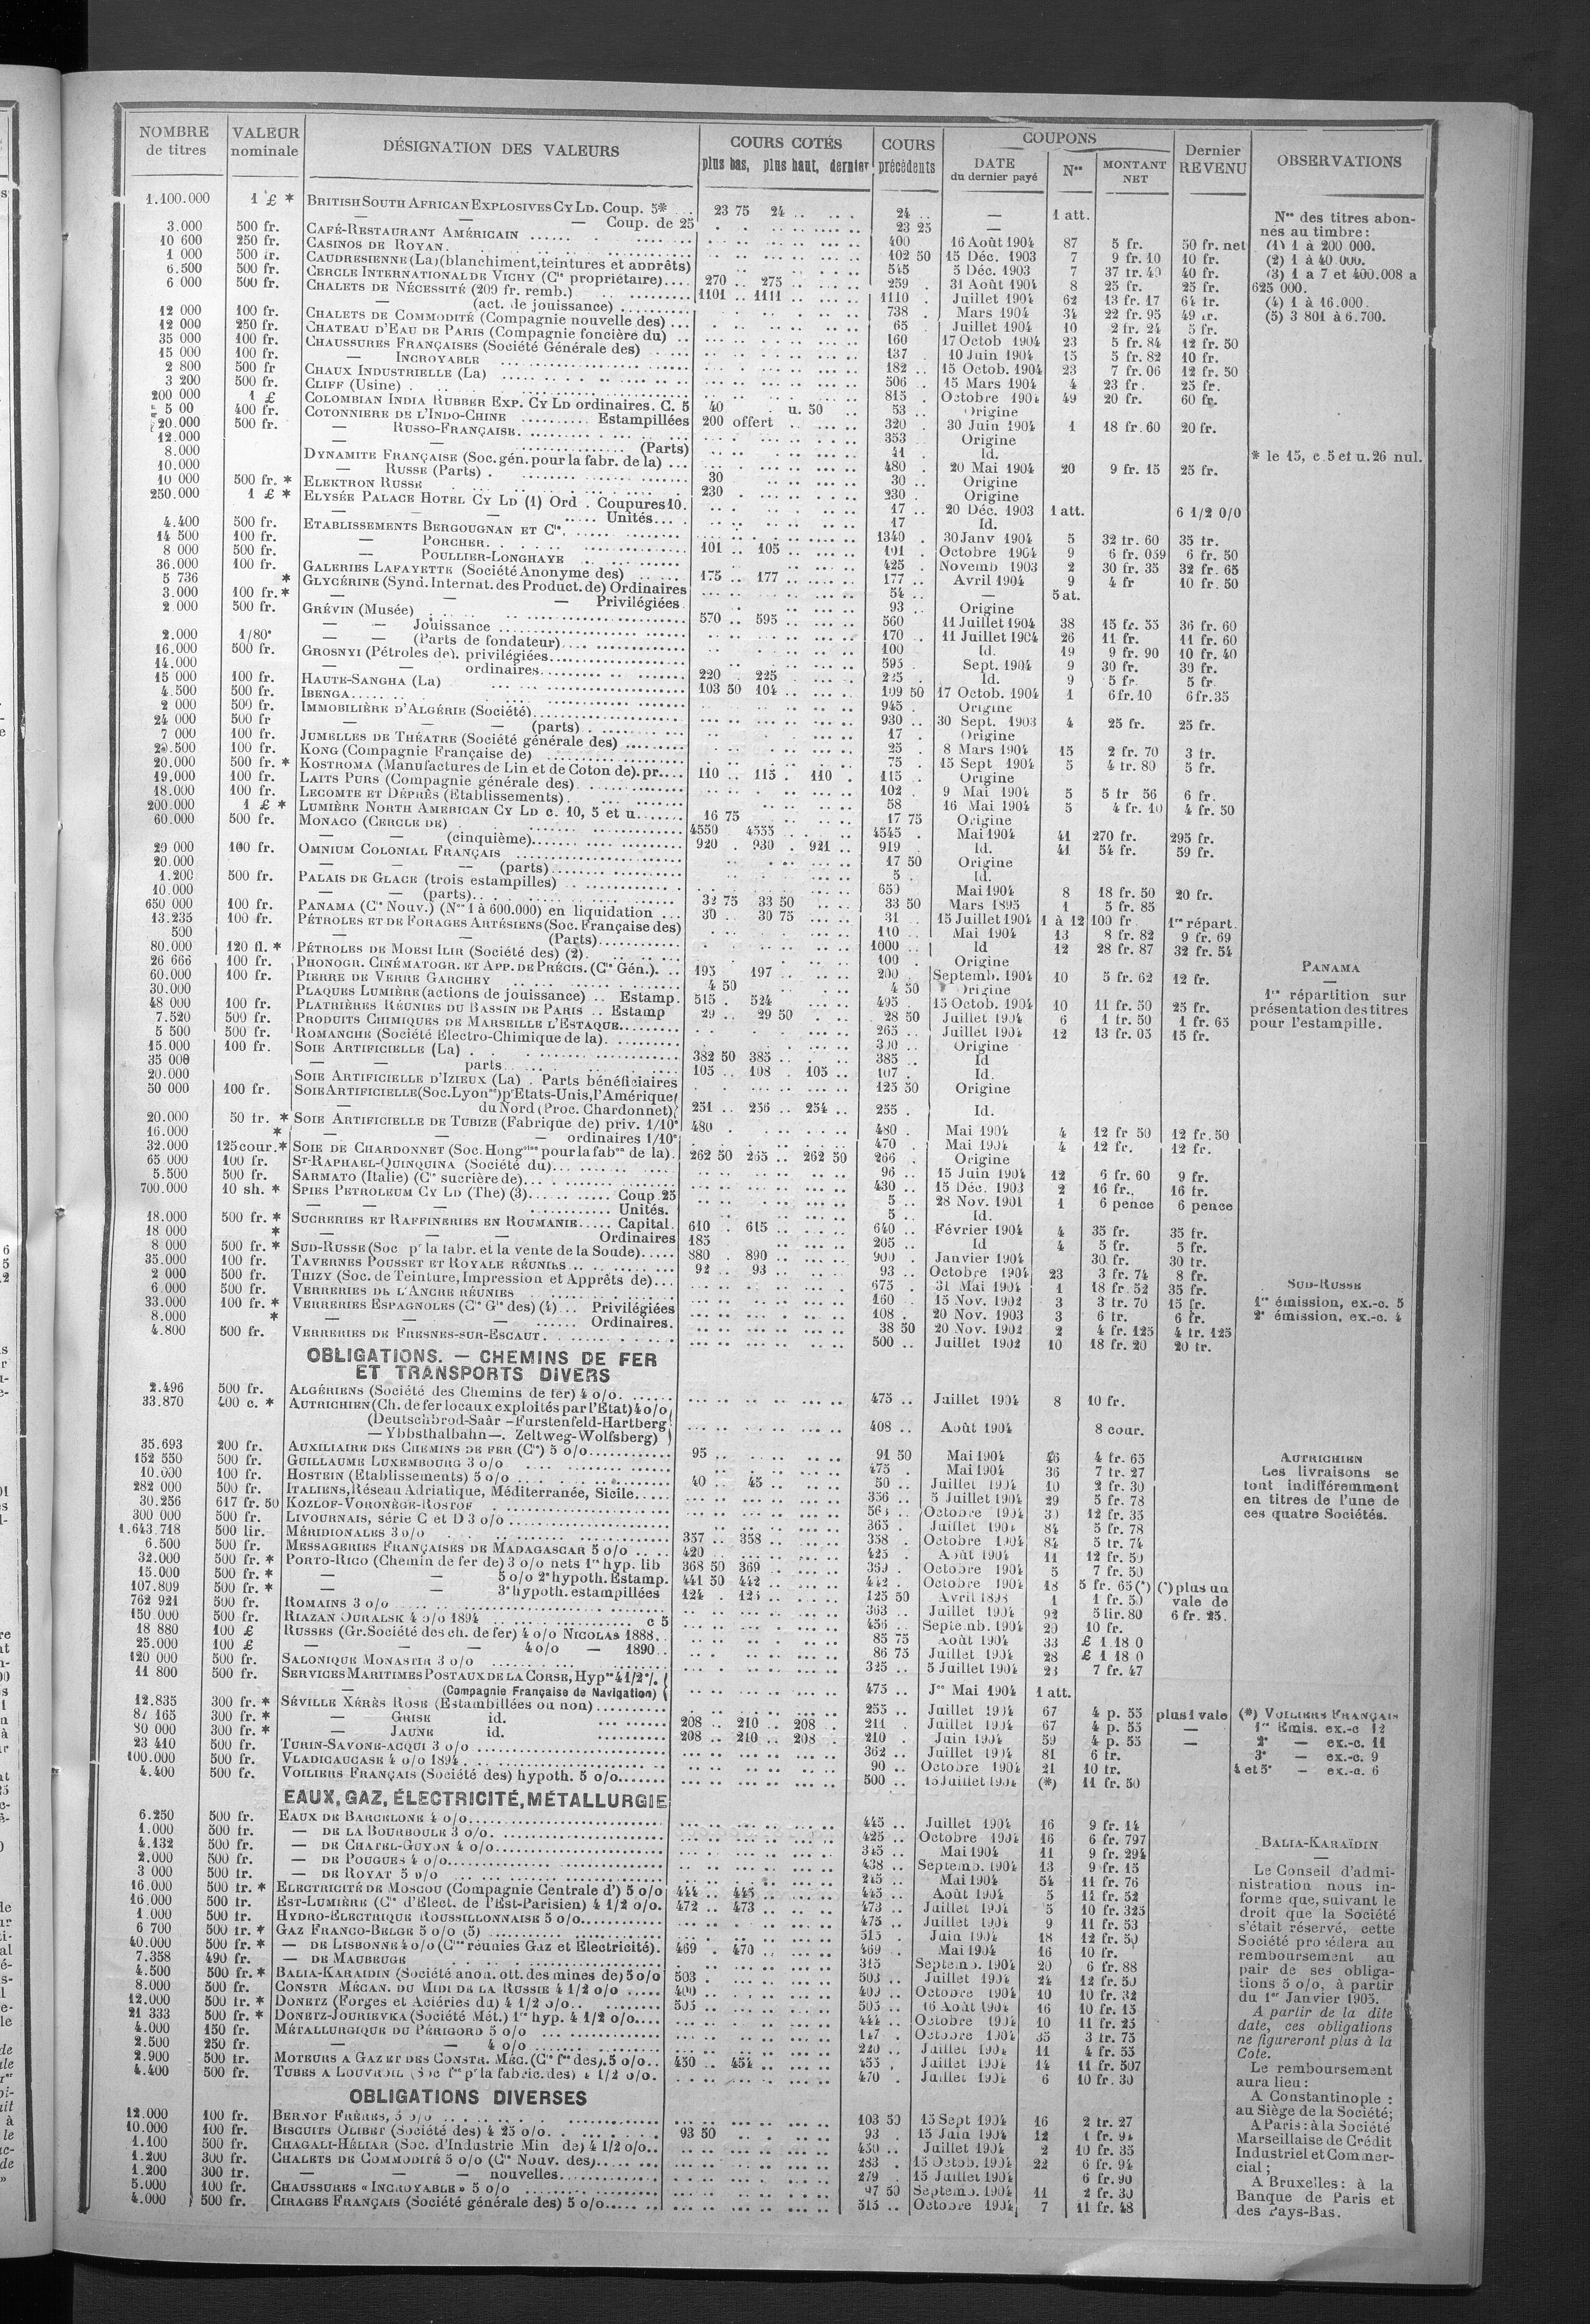 NOMBRE de titres | VALEUR nominale | DÉSIGNATION DES VALEURS | COURS COTÉS plus bas, plus haut, dernier | COURS précédents | COUPONS DATE du dernier payé | Nos | MONTANT NET | Dernier REVENU | OBSERVATIONS
1.100.000 1 £ * BRITISH SOUTH AFRICAN EXPLOSIVES CY LD. Coup. 5* 23 75 24 .. 24 .. — 1 att.
— — — Coup. de 25 23 25 —
3.000 500 fr. CAFÉ-RESTAURANT AMÉRICAIN 400 16 Août 1904 87 5 fr. 50 fr. net
10 600 250 fr. CASINOS DE ROYAN 102 50 15 Déc. 1903 7 9 fr. 10 10 fr.
1 000 500 fr. CAUDRESIENNE (La) (blanchiment, teintures et apprêts) 545 5 Déc. 1903 7 37 fr. 40 40 fr.
6.500 500 fr. CERCLE INTERNATIONAL DE VICHY (Cie propriétaire) 270 .. 275 .. 259 . 31 Août 1904 8 25 fr. 25 fr.
6 000 500 fr. CHALETS DE NÉCESSITÉ (200 fr. remb.) 1101 .. 1111 .. 1110 . Juillet 1904 62 13 fr. 17 64 fr.
— (act. de jouissance) 738 . Mars 1904 34 22 fr. 95 49 fr.
12 000 100 fr. CHALETS DE COMMODITÉ (Compagnie nouvelle des) 65 . Juillet 1904 10 2 fr. 24 5 fr.
12 000 250 fr. CHATEAU D'EAU DE PARIS (Compagnie foncière du) 160 17 Octob 1904 23 5 fr. 84 12 fr. 50
35 000 100 fr. CHAUSSURES FRANÇAISES (Société Générale des) 137 . 10 Juin 1904 15 5 fr. 82 10 fr.
15 000 100 fr. — INCROYABLE 182 .. 15 Octob. 1904 23 7 fr. 06 12 fr. 50
2 800 500 fr CHAUX INDUSTRIELLE (La) 506 . 15 Mars 1904 4 23 fr. 25 fr.
3 200 500 fr. CLIFF (Usine) 815 . Octobre 1904 49 20 fr. 60 fr.
200 000 1 £ COLOMBIAN INDIA RUBBER EXP. CY LD ordinaires. C. 5 40 u. 50 53 .. Origine
5 00 400 fr. COTONNIERE DE L'INDO-CHINE Estampillées 200 offert 320 . 30 Juin 1904 1 18 fr. 60 20 fr.
20.000 500 fr. — RUSSO-FRANÇAISE 353 Origine
12.000 — — (Parts) 41 . Id.
8.000 DYNAMITE FRANÇAISE (Soc. gén. pour la fabr. de la) 480 . 20 Mai 1904 20 9 fr. 15 25 fr.
10.000 — RUSSE (Parts) 30 30 .. Origine
10 000 500 fr. * ELEKTRON RUSSE 230 230 . Origine
250.000 1 £ * ELYSÉE PALACE HOTEL CY LD (1) Ord. Coupures 10. 17 .. 20 Déc. 1903 1 att. 6 1/2 0/0
— — — Unités 17 Id.
4.400 500 fr. ETABLISSEMENTS BERGOUGNAN ET Cie 1340 . 30 Janv 1904 5 32 fr. 60 35 fr.
14 500 100 fr. — PORCHER 101 .. 105 .. 101 . Octobre 1904 9 6 fr. 059 6 fr. 50
8 000 500 fr. — POULLIER-LONGHAYE 425 . Novemb 1903 2 30 fr. 35 32 fr. 65
36.000 100 fr. GALERIES LAFAYETTE (Société Anonyme des) 175 .. 177 .. 177 .. Avril 1904 9 4 fr 10 fr. 50
5 736 * GLYCÉRINE (Synd. Internat. des Product. de) Ordinaires 54 .. — 5 at.
3.000 100 fr. * — — Privilégiées 93 .. Origine
2.000 500 fr. GRÉVIN (Musée) 570 .. 595 .. 560 11 Juillet 1904 38 15 fr. 55 36 fr. 60
— — Jouissance 170 . 11 Juillet 1904 26 11 fr. 11 fr. 60
2.000 1/80e — — (Parts de fondateur) 100 Id. 19 9 fr. 90 10 fr. 40
16.000 500 fr. GROSNYI (Pétroles de). privilégiées 595 . Sept. 1904 9 30 fr. 39 fr.
14.000 — — ordinaires 220 . 225 225 . Id. 9 5 fr. 5 fr.
15 000 100 fr. HAUTE-SANGHA (La) 103 50 104 .. 109 50 17 Octob. 1904 1 6 fr. 10 6 fr. 35
4.500 500 fr. IBENGA 945 . Origine
2 000 500 fr. IMMOBILIÈRE D'ALGÉRIE (Société) 930 .. 30 Sept. 1903 4 25 fr. 25 fr.
24 000 500 fr — — — (parts) 17 . Origine
7 000 100 fr. JUMELLES DE THÉATRE (Société générale des) 25 . 8 Mars 1904 15 2 fr. 70 3 fr.
20.500 100 fr. KONG (Compagnie Française de) 75 . 15 Sept 1904 5 4 fr. 80 5 fr.
20.000 500 fr. * KOSTROMA (Manufactures de Lin et de Coton de). pr. 110 .. 115 . 110 . 115 . Origine
19.000 100 fr. LAITS PURS (Compagnie générale des) 102 . 9 Mai 1904 5 5 fr 56 6 fr.
18.000 100 fr. LECOMTE ET DÉPRÈS (Etablissements) 58 16 Mai 1904 5 4 fr. 10 4 fr. 50
200.000 1 £ * LUMIÈRE NORTH AMERICAN CY LD c. 10, 5 et u. 16 75 17 75 Origine
60.000 500 fr. MONACO (CERCLE DE) 4550 . 4555 4545 . Mai 1904 41 270 fr. 295 fr.
— — (cinquième) 920 . 930 . 921 .. 919 . Id. 41 54 fr. 59 fr.
20 000 100 fr. OMNIUM COLONIAL FRANÇAIS 17 50 Origine
20.000 — — — (parts) 5 . Id.
1.200 500 fr. PALAIS DE GLACE (trois estampilles) 650 Mai 1904 8 18 fr. 50 20 fr.
10.000 — — (parts) 32 75 33 50 33 50 Mars 1895 1 5 fr. 85
650 000 100 fr. PANAMA (Cie Nouv.) (Nos 1 à 600.000) en liquidation 30 .. 30 75 31 .. 15 Juillet 1904 1 à 12 100 fr 1re répart.
13.235 100 fr. PÉTROLES ET DE FORAGES ARTÉSIENS (Soc. Française des) 110 . Mai 1904 13 8 fr. 82 9 fr. 69
500 — — (Parts) 1000 .. Id 12 28 fr. 87 32 fr. 54
80.000 120 fl. * PÉTROLES DE MOESI ILIR (Société des) (2) 100 . Origine
26 666 100 fr. PHONOGR. CINÉMATOGR. ET APP. DE PRÉCIS. (Cie Gén.) 195 197 .. 200 . Septemb. 1904 10 5 fr. 62 12 fr.
60.000 100 fr. PIERRE DE VERRE GARCHEY 4 50 4 50 Origine
30.000 PLAQUES LUMIÈRE (actions de jouissance) .. Estamp. 515 . 524 495 . 15 Octob. 1904 10 11 fr. 50 25 fr.
48 000 100 fr. PLATRIÈRES RÉUNIES DU BASSIN DE PARIS .. Estamp 29 .. 29 50 28 50 Juillet 1904 6 1 fr. 50 1 fr. 65
7.520 500 fr. PRODUITS CHIMIQUES DE MARSEILLE L'ESTAQUE 265 .. Juillet 1904 12 13 fr. 05 15 fr.
5 500 500 fr. ROMANCHE (Société Electro-Chimique de la) 300 .. Origine
15.000 100 fr. SOIE ARTIFICIELLE (La) 382 50 385 .. 385 .. Id
35 000 — — parts 105 .. 108 . 105 .. 107 . Id.
20.000 SOIE ARTIFICIELLE D'IZIEUX (La) . Parts bénéficiaires 125 50 Origine
50 000 100 fr. SOIE ARTIFICIELLE (Soc. Lyonnse) pr Etats-Unis, l'Amérique
— du Nord (Proc. Chardonnet) 251 .. 256 .. 254 .. 255 . Id.
20.000 50 fr. * SOIE ARTIFICIELLE DE TUBIZE (Fabrique de) priv. 1/10e 480 . 480 . Mai 1904 4 12 fr 50 12 fr. 50
16.000 * — — — ordinaires 1/10e 470 . Mai 1904 4 12 fr. 12 fr.
32.000 125 cour. * SOIE DE CHARDONNET (Soc. Hongroise pour la fabon de la). 262 50 265 .. 262 50 266 . Origine
65.000 100 fr. ST-RAPHAEL-QUINQUINA (Société du) 96 .. 15 Juin 1904 12 6 fr. 60 9 fr.
5.500 500 fr. SARMATO (Italie) (Cie sucrière de) 430 .. 15 Déc. 1903 2 16 fr. 16 fr.
700.000 10 sh. * SPIES PETROLEUM CY LD (The) (3) Coup 25 5 .. 28 Nov. 1901 1 6 pence 6 pence
— — — Unités. 5 .. Id.
18.000 500 fr. * SUCRERIES ET RAFFINERIES EN ROUMANIE Capital. 610 . 615 .. 640 . Février 1904 4 35 fr. 35 fr.
18 000 * — — — Ordinaires 185 205 .. Id 4 5 fr. 5 fr.
8 000 500 fr. * SUD-RUSSE (Soc pr la fabr. et la vente de la Soude) 880 890 .. 900 . Janvier 1904 30 fr. 30 fr.
35.000 100 fr. TAVERNES POUSSET ET ROYALE RÉUNIES 92 .. 93 .. 93 .. Octobre 1904 23 3 fr. 74 8 fr.
2 000 500 fr. THIZY (Soc. de Teinture, Impression et Apprêts de) 675 . 31 Mai 1904 1 18 fr. 52 35 fr.
6.000 500 fr. VERRERIES DE L'ANCRE RÉUNIES 160 . 15 Nov. 1902 3 3 fr. 70 15 fr.
33.000 100 fr. * VERRERIES ESPAGNOLES (Cie Gle des) (4) Privilégiées 108 . 20 Nov. 1903 3 6 fr. 6 fr.
8.000 * — — — Ordinaires. 38 50 20 Nov. 1902 2 4 fr. 125 4 fr. 125
4.800 500 fr. VERRERIES DE FRESNES-SUR-ESCAUT 500 .. Juillet 1902 10 18 fr. 20 20 fr.
OBLIGATIONS. — CHEMINS DE FER
ET TRANSPORTS DIVERS
2.496 500 fr. ALGÉRIENS (Société des Chemins de fer) 4 o/o. 475 .. Juillet 1904 8 10 fr.
33.870 400 c. * AUTRICHIEN (Ch. de fer locaux exploités par l'État) 4 o/o
(Deutschbrod-Saâr —Furstenfeld-Hartberg
— Ybbsthalbahn —. Zeltweg-Wolfsberg) 408 .. Août 1904 8 cour.
35.693 200 fr. AUXILIAIRE DES CHEMINS DE FER (Cie) 5 o/o 95 .. 91 50 Mai 1904 46 4 fr. 65
152 550 500 fr. GUILLAUME LUXEMBOURG 3 o/o 475 . Mai 1904 36 7 fr. 27
10.000 100 fr. HOSTEIN (Etablissements) 5 o/o 40 .. 45 .. 50 .. Juillet 1904 10 2 fr. 30
282 000 500 fr. ITALIENS, Réseau Adriatique, Méditerranée, Sicile 356 .. 5 Juillet 1904 29 5 fr. 78
30.256 617 fr. 50 KOZLOF-VORONÈGE-ROSTOF Octobre 1904 30 12 fr. 35
300 000 500 fr. LIVOURNAIS, série C et D 3 o/o 365 . Juillet 1904 84 5 fr. 78
1.643.718 500 lir. MÉRIDIONALES 3 o/o 357 .. 358 .. 358 . Octobre 1904 84 5 fr. 74
6.500 500 fr. MESSAGERIES FRANÇAISES DE MADAGASCAR 5 o/o 420 425 . Août 1904 11 12 fr. 50
32.000 500 fr. * PORTO-RICO (Chemin de fer de) 3 o/o nets 1re hyp. lib 368 50 369 . 369 . Octobre 1904 5 7 fr. 50
15.000 500 fr. * — — 5 o/o 2e hypoth. Estamp. 441 50 442 .. 442 . Octobre 1904 18 5 fr. 65 (*) (*) plus un
107.809 500 fr. * — — 3e hypoth. estampillées 124 . 125 .. 125 50 Avril 1898 1 1 fr. 50 vale de
762 921 500 fr. ROMAINS 3 o/o 363 .. Juillet 1904 92 5 lir. 80 6 fr. 25.
150.000 500 fr. RIAZAN OURALSK 4 o/o 1894 c 5 456 .. Septemb. 1904 20 10 fr.
18 880 100 £ RUSSES (Gr. Société des ch. de fer) 4 o/o NICOLAS 1888 85 75 Août 1904 33 £ 1.18 0
25.000 100 £ — — — 4 o/o — 1890 86 75 Juillet 1904 28 £ 1 18 0
120 000 500 fr. SALONIQUE MONASTIR 3 o/o 325 .. 5 Juillet 1904 23 7 fr. 47
11 800 500 fr. SERVICES MARITIMES POSTAUX DE LA CORSE, Hypre 4 1/2 %.
— (Compagnie Française de Navigation) 475 .. Jce Mai 1904 1 att.
12.835 300 fr. * SÉVILLE XÉRÈS ROSE (Estambillées ou non) 255 .. Juillet 1904 67 4 p. 55 plus 1 vale
87 165 300 fr. * — GRISE id. 208 .. 210 .. 208 .. 211 . Juillet 1904 67 4 p. 55 —
80 000 300 fr. * — JAUNE id. 208 .. 210 .. 208 . 210 . Juin 1904 59 4 p. 55 —
23 410 500 fr. TURIN-SAVONE-ACQUI 3 o/o 362 .. Juillet 1904 81 6 fr.
100.000 500 fr. VLADICAUCASE 4 o/o 1894 90 .. Octobre 1904 21 10 fr.
4.400 500 fr. VOILIERS FRANÇAIS (Société des) hypoth. 5 o/o 500 .. 15 Juillet 1904 (*) 11 fr. 50
EAUX, GAZ, ÉLECTRICITÉ, MÉTALLURGIE
6.250 500 fr. EAUX DE BARCELONE 4 o/o 445 .. Juillet 1904 16 9 fr. 14
1.000 500 fr. — DE LA BOURBOULE 3 o/o. 425 .. Octobre 1904 16 6 fr. 797
4.132 500 fr. — DE CHATEL-GUYON 4 o/o 345 .. Mai 1904 11 9 fr. 294
2.000 500 fr. — DE POUGUES 4 o/o 438 .. Septemb. 1904 13 9 fr. 15
3 000 500 fr. — DE ROYAT 5 o/o 245 .. Mai 1904 54 11 fr. 76
16.000 500 fr. * ELECTRICITÉ DE MOSCOU (Compagnie Centrale d') 5 o/o 444 .. 445 .. 445 .. Août 1904 5 11 fr. 52
16.000 500 fr. EST-LUMIÈRE (Cie d'Elect. de l'Est-Parisien) 4 1/2 o/o. 472 .. 473 .. 473 .. Juillet 1904 5 10 fr. 325
1.000 500 fr. HYDRO-ÉLECTRIQUE ROUSSILLONNAISE 5 o/o 475 .. Juillet 1904 9 11 fr. 53
6 700 500 fr. * GAZ FRANCO-BELGE 5 o/o (5) 515 . Juin 1904 18 12 fr. 50
40.000 500 fr. * — DE LISBONNE 4 o/o (Cies réunies Gaz et Electricité). 469 . 470 .. 469 . Mai 1904 16 10 fr.
7.358 490 fr. — DE MAUBEUGE 315 Septemb. 1904 20 6 fr. 88
4.500 500 fr. * BALIA-KARAIDIN (Société anon. ott. des mines de) 5 o/o 503 503 .. Juillet 1904 24 12 fr. 50
8.000 500 fr. CONSTR. MÉCAN. DU MIDI DE LA RUSSIE 4 1/2 o/o 400 400 .. Octobre 1904 10 10 fr. 32
12.000 500 fr. * DONETZ (Forges et Aciéries du) 4 1/2 o/o 505 505 .. 16 Août 1904 16 10 fr. 15
21 333 500 fr. * DONETZ-JOURIEVKA (Société Mét.) 1re hyp. 4 1/2 o/o 444 .. Octobre 1904 10 11 fr. 25
4.000 150 fr. MÉTALLURGIQUE DU PÉRIGORD 5 o/o 147 . Octobre 1904 35 3 fr. 75
2.500 250 fr. — — 4 o/o 220 .. Juillet 1904 11 4 fr. 55
2.900 500 fr. MOTEURS A GAZ ET DES CONSTR. MÉC. (Cie fse des). 5 o/o 450 .. 454 .. 455 . Juillet 1904 14 11 fr. 507
4.400 500 fr. TUBES A LOUVROIL (Soc fse pr la fabric. des) 4 1/2 o/o. 470 . Juillet 1904 6 10 fr. 30
OBLIGATIONS DIVERSES
12.000 100 fr. BERNOT FRÈRES, 5 o/o 103 50 15 Sept 1904 16 2 fr. 27
10.000 100 fr. BISCUITS OLIBET (Société des) 4 25 o/o 93 50 93 . 15 Juin 1904 12 1 fr. 94
1.100 500 fr. CHAGALI-HÉLIAR (Soc. d'Industrie Min de) 4 1/2 o/o 450 .. Juillet 1904 2 10 fr. 35
1.200 300 fr. CHALETS DE COMMODITÉ 5 o/o (Cie Nouv. des) 283 . 15 Octob. 1904 22 6 fr. 94
1.200 300 fr. — — — nouvelles 279 . 15 Juillet 1904 6 fr. 90
5.000 100 fr. CHAUSSURES « INCROYABLE » 5 o/o 97 50 Septemb. 1904 11 2 fr. 30
4.000 500 fr. CIRAGES FRANÇAIS (Société générale des) 5 o/o 515 .. Octobre 1904 7 11 fr. 48
Nos des titres abonnés au timbre :
(1) 1 à 200 000.
(2) 1 à 40.000.
(3) 1 à 7 et 400.008 a
625 000.
(4) 1 à 16.000.
(5) 3 801 à 6.700.
* le 15, c. 5 et u. 26 nul.
PANAMA
—
1re répartition sur
présentation des titres
pour l'estampille.
SUD-RUSSE
1re émission, ex.-c. 5
2e émission, ex.-c. 4
AUTRICHIEN
Les livraisons se
font indifféremment
en titres de l'une de
ces quatre Sociétés.
(*) VOILIERS FRANÇAIS
1re Emis. ex.-c 12
2e — ex.-c. 11
3e — ex.-c. 9
4 et 5e — ex.-c. 6
BALIA-KARAÏDIN
—
Le Conseil d'admi-
nistration nous in-
forme que, suivant le
droit que la Société
s'était réservé, cette
Société procédera au
remboursement au
pair de ses obliga-
tions 5 o/o, à partir
du 1er Janvier 1905.
A partir de la dite
date, ces obligations
ne figureront plus à la
Cote.
Le remboursement
aura lieu :
A Constantinople :
au Siège de la Société;
A Paris : à la Société
Marseillaise de Crédit
Industriel et Commer-
cial ;
A Bruxelles : à la
Banque de Paris et
des Pays-Bas.